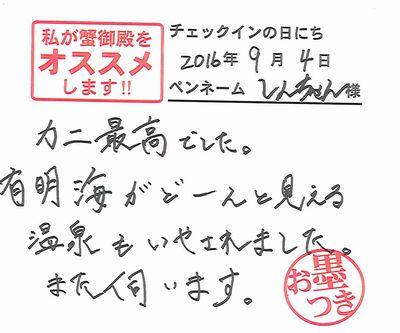 私が蟹御殿を
オススメ
します!!
チェックインの日にち
2016年 9月 4日
ペンネーム しんちゃん様
カニ最高でした。
有明海がどーんと見える
温泉もいやされました。
また伺います。
お墨
つき